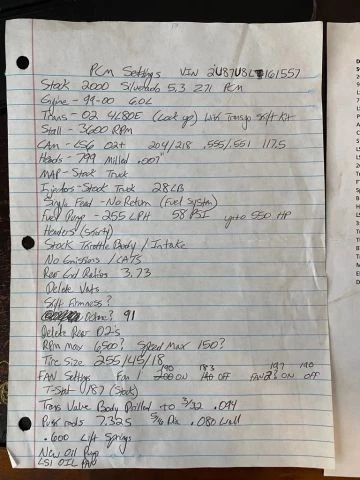 PCM Settings VIN 2U87U8L161557
Stock 2000 Silverado 5.3 Z71 PCM
Engine - 99-00 6.0L
Trans - 02 4L80E (Lock up) with Transgo shift kit
Stall - 3600 RPM
CAM - LS6 02+ 204/218 .555/.551 117.5
Heads - 799 Milled .007"
MAP - Stock Truck
Injectors - Stock Truck 28LB
Single Feed - No Return (Fuel system)
Fuel Pump - 255 LPH 58 PSI up to 550 HP
Headers (shorty)
Stock Throttle Body / Intake
No Emissions / CATS
Rear End Ratios 3.73
Delete Vats
Shift Firmness?
Octane? 91
Delete Rear O2's
RPM Max 6500? Speed Max 150?
Tire Size 255/45/18
FAN Settings Fan 1 190 ON 183 OFF FAN 2 197 ON 190 OFF
T-Stat 187 (Stock)
Trans Valve Body Drilled to 3/32 .094
Push rods 7.325 5/16 Dia .080 wall
.600 Lift Springs
New Oil Pump
LS1 OIL PAN